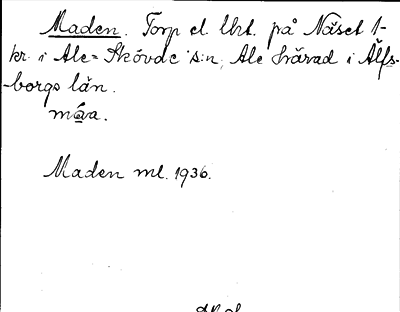 Maden. Torp el. lht. på Näset 1-
kr. i Ale-Skövde s:n, Ale härad i Älfs-
-borgs län.
máa.
Maden ml. 1936.